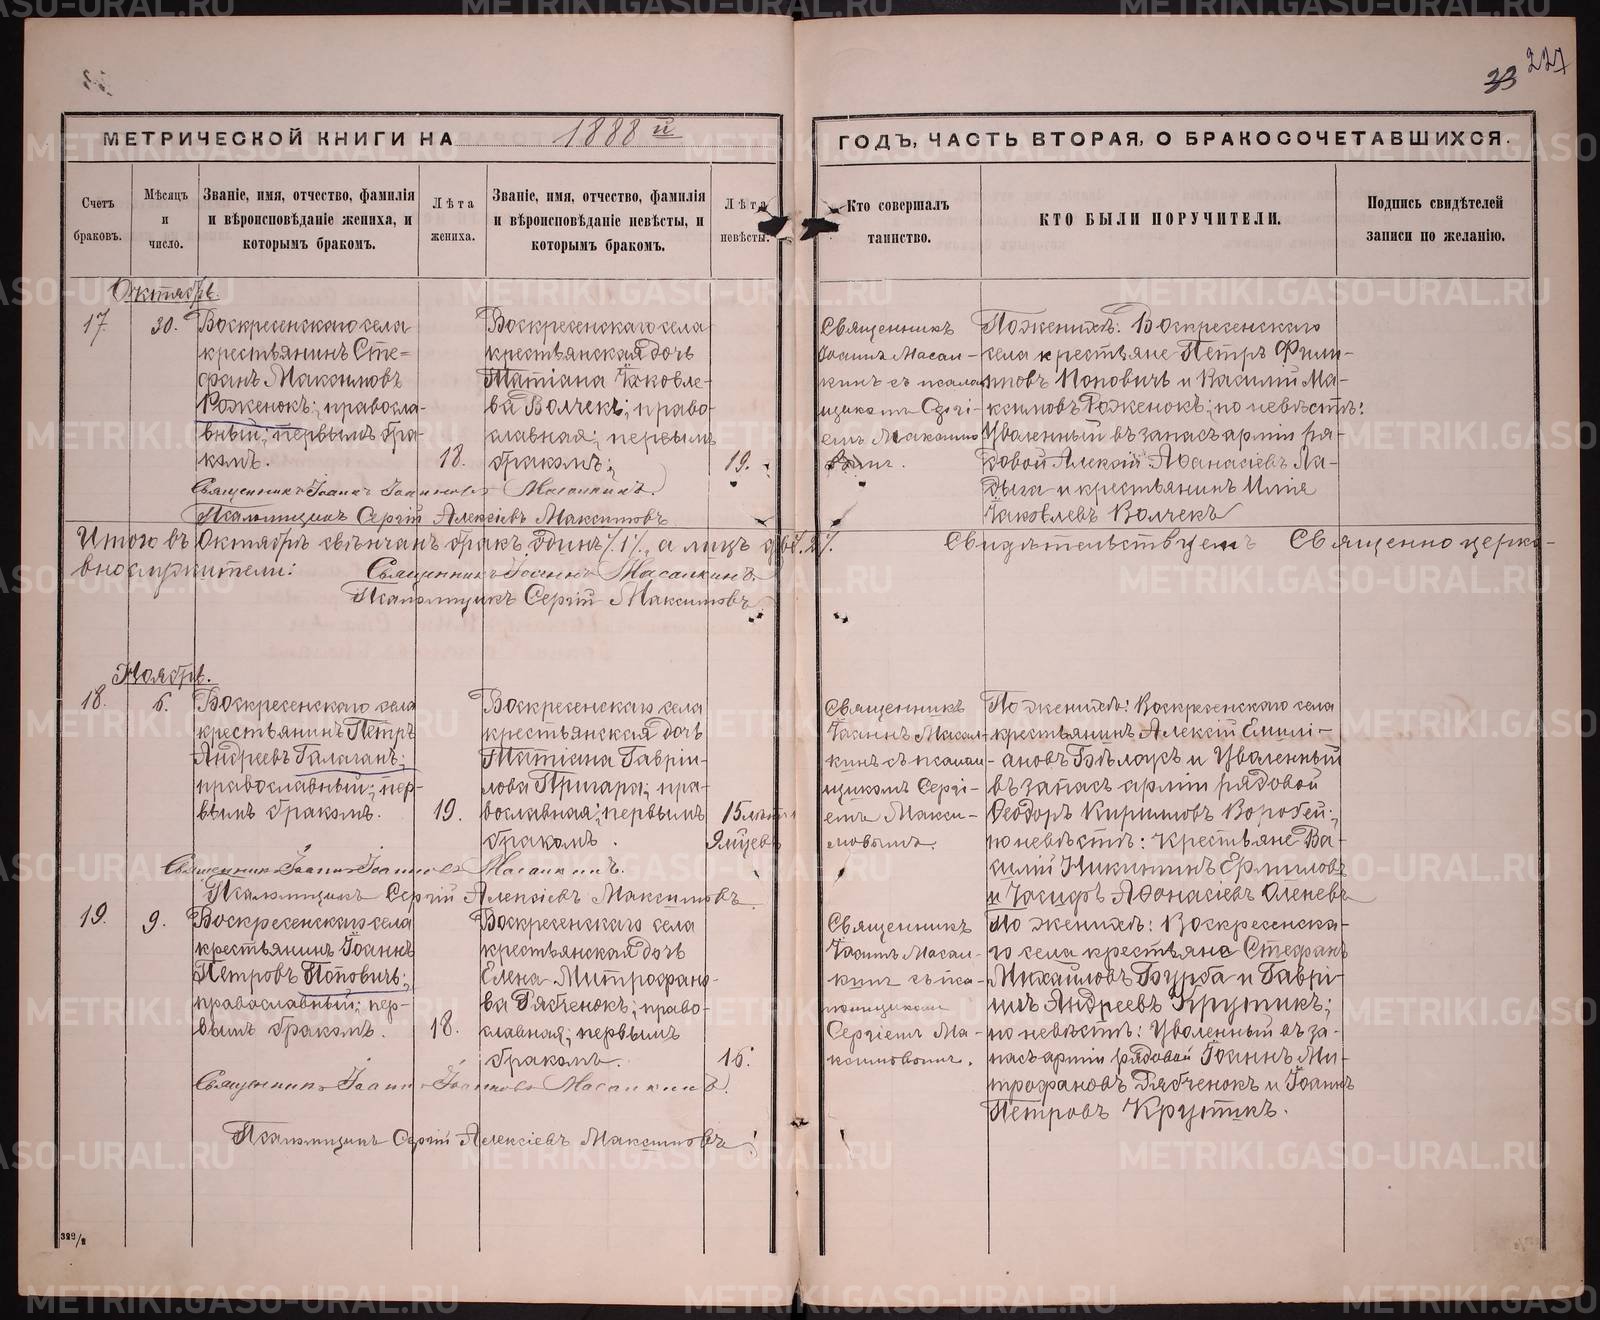 33 227
МЕТРИЧЕСКОЙ КНИГИ НА 1888й
ГОДЪ, ЧАСТЬ ВТОРАЯ, О БРАКОСОЧЕТАВШИХСЯ.
Счетъ
браковъ.
Мѣсяцъ
и
число.
Званіе, имя, отчество, фамилія
и вѣроисповѣданіе жениха, и
которымъ бракомъ.
Лѣта
жениха.
Званіе, имя, отчество, фамилія
и вѣроисповѣданіе невѣсты, и
которымъ бракомъ.
Лѣта
невѣсты.
Кто совершалъ
таинство.
КТО БЫЛИ ПОРУЧИТЕЛИ.
Подпись свидѣтелей
записи по желанію.
Октябрь.
17.
30.
Воскресенскаго села
крестьянинъ Сте-
фанъ Максимовъ
Роженокъ; правосла-
вный; первымъ бра-
комъ.
18.
Воскресенскаго села
крестьянская дочь
Татіана Іаковле-
ва Волчекъ; право-
славная; первымъ
бракомъ;
19.
Священникъ
Іоаннъ Масал-
кинъ съ псалом-
щикомъ Сергі-
емъ Максимо
вымъ.
По женихѣ: Воскресенскаго
села крестьяне Петръ Фили-
повъ Поповичъ и Василій Ма-
ксимовъ Роженокъ; по невѣстѣ:
Уволенный въ запасъ арміи ря-
довой Алексій Аѳанасіевъ Ла-
дыга и крестьянинъ Илія
Іаковлевъ Волчекъ
Священникъ Іоаннъ Іоанновъ Масалкинъ.
Псаломщикъ Сергій Алексіевъ Максимовъ
Итого въ Октябрѣ свѣнчанъ бракъ одинъ /.1/., а лицъ двѣ /.2/. Свидѣтельствуемъ Священно церко-
внослужители: Священникъ Іоаннъ Масалкинъ.
Псаломщикъ Сергій Максимовъ
Ноябрь.
18.
6.
Воскресенскаго села
крестьянинъ Петръ
Андреевъ Галаганъ;
православный; пер-
вымъ бракомъ.
19.
Воскресенскаго села
крестьянская дочь
Татіана Гавріи-
лова Пригара; пра-
вославная; первымъ
бракомъ.
15 лѣтъ
9 мѣцевъ
Священникъ
Іоаннъ Масал-
кинъ съ псалом-
щикомъ Сергі-
емъ Макси-
мовымъ.
По женихѣ: Воскресенскаго села
крестьянинъ Алексій Емилі-
ановъ Бѣлоусъ и Уволенный
въ запасъ арміи рядовой
Ѳеодоръ Кирилловъ Воробей;
по невѣстѣ: крестьяне Ва-
силій Никитинъ Ермиловъ
и Іасифъ Аѳонасіевъ Оленевъ
Священникъ Іоаннъ Іоанновъ Масалкинъ.
Псаломщикъ Сергій Алексіевъ Максимовъ
19.
9.
Воскресенскаго села
крестьянинъ Іоаннъ
Петровъ Поповичъ;
православный; пер-
вымъ бракомъ.
18.
Воскресенскаго села
крестьянская дочь
Елена Митрофано-
ва Рябченокъ; право-
славная; первымъ
бракомъ.
16.
Священникъ
Іоаннъ Масал-
кинъ съ пса-
ломщикомъ
Сергіемъ Ма-
ксимовымъ.
По женихѣ: Воскресенска-
го села крестьяне Стефанъ
Михайловъ Бурба и Гаврі-
илъ Андреевъ Крутикъ;
по невѣстѣ: Уволенный въ за-
пасъ арміи рядовой Іоаннъ Ми-
трофановъ Рябченокъ и Іоаннъ
Петровъ Крутикъ.
Священникъ Іоаннъ Іоанновъ Масалкинъ.
Псаломщикъ Сергій Алексіевъ Максимовъ
METRIKI.GASO-URAL.RU